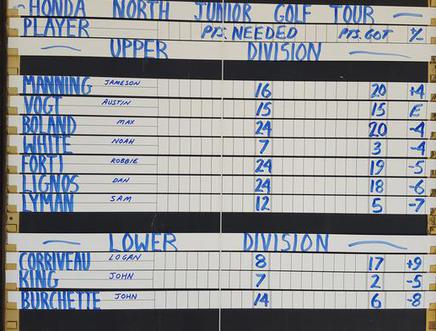 HONDA NORTH JUNIOR GOLF TOUR
PLAYER PTS. NEEDED PTS. GOT +/-
UPPER DIVISION
MANNING JAMESON 16 20 +4
VOGT AUSTIN 15 15 E
BOLAND MAX 24 20 -4
WHITE NOAH 7 3 -4
FORTI ROBBIE 24 19 -5
LIGNOS DAN 24 18 -6
LYMAN SAM 12 5 -7
LOWER DIVISION
CORRIVEAU LOGAN 8 17 +9
KING JOHN 7 2 -5
BURCHETTE JOHN 14 6 -8